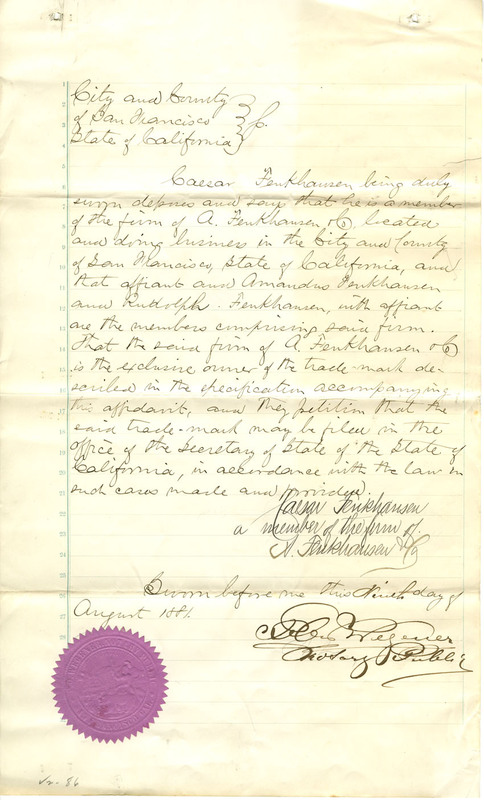 City and County
of San Francisco
State of California
Caesar Fenkhausen being duly
sworn deposes and says that he is a member
of the firm of A. Fenkhausen & Co, located
and doing business in the City and County
of San Francisco, State of California, and
that affiant and Amandus Fenkhausen
and Rudolph Fenkhausen, with affiant
are the members comprising said firm.
That the said firm of A. Fenkhausen & Co
is the exclusive owner of the trade-mark de-
scribed in the specification accompanying
this affidavit, and they petition that the
said trade-mark may be filed in the
office of the Secretary of State of the State of
California, in accordance with the law in
such cases made and provided.
Caesar Fenkhausen
a member of the firm of
A. Fenkhausen & Co
Sworn before me this Ninth day of
August 1881.
Wegener
Notary Public